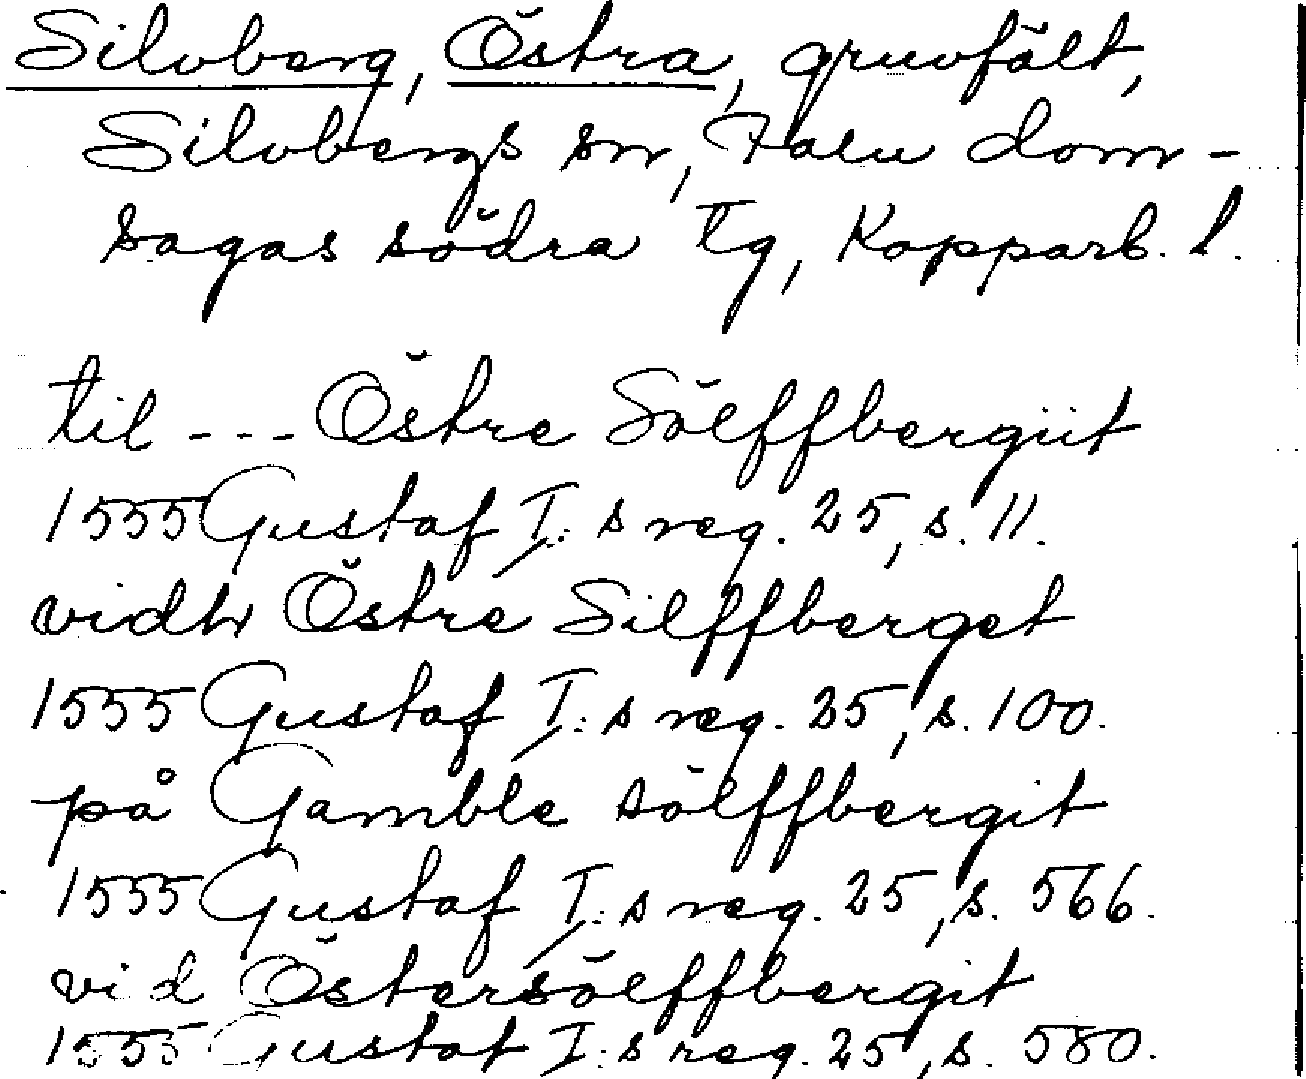 Silvberg, Östra, gruvfält,
Silvbergs sn, Falu dom-
sagas södra tg, Kopparb. l.
til --- Östre Sölffbergiit
1555 Gustaf I:s reg. 25, s. 11.
vidh Östre Silffberget
1555 Gustaf I:s reg. 25, s. 100.
på Gamble sölffbergit
1555 Gustaf I:s reg. 25, s. 566.
vid Östersölffbergit
1555 Gustaf I:s reg. 25, s. 580.